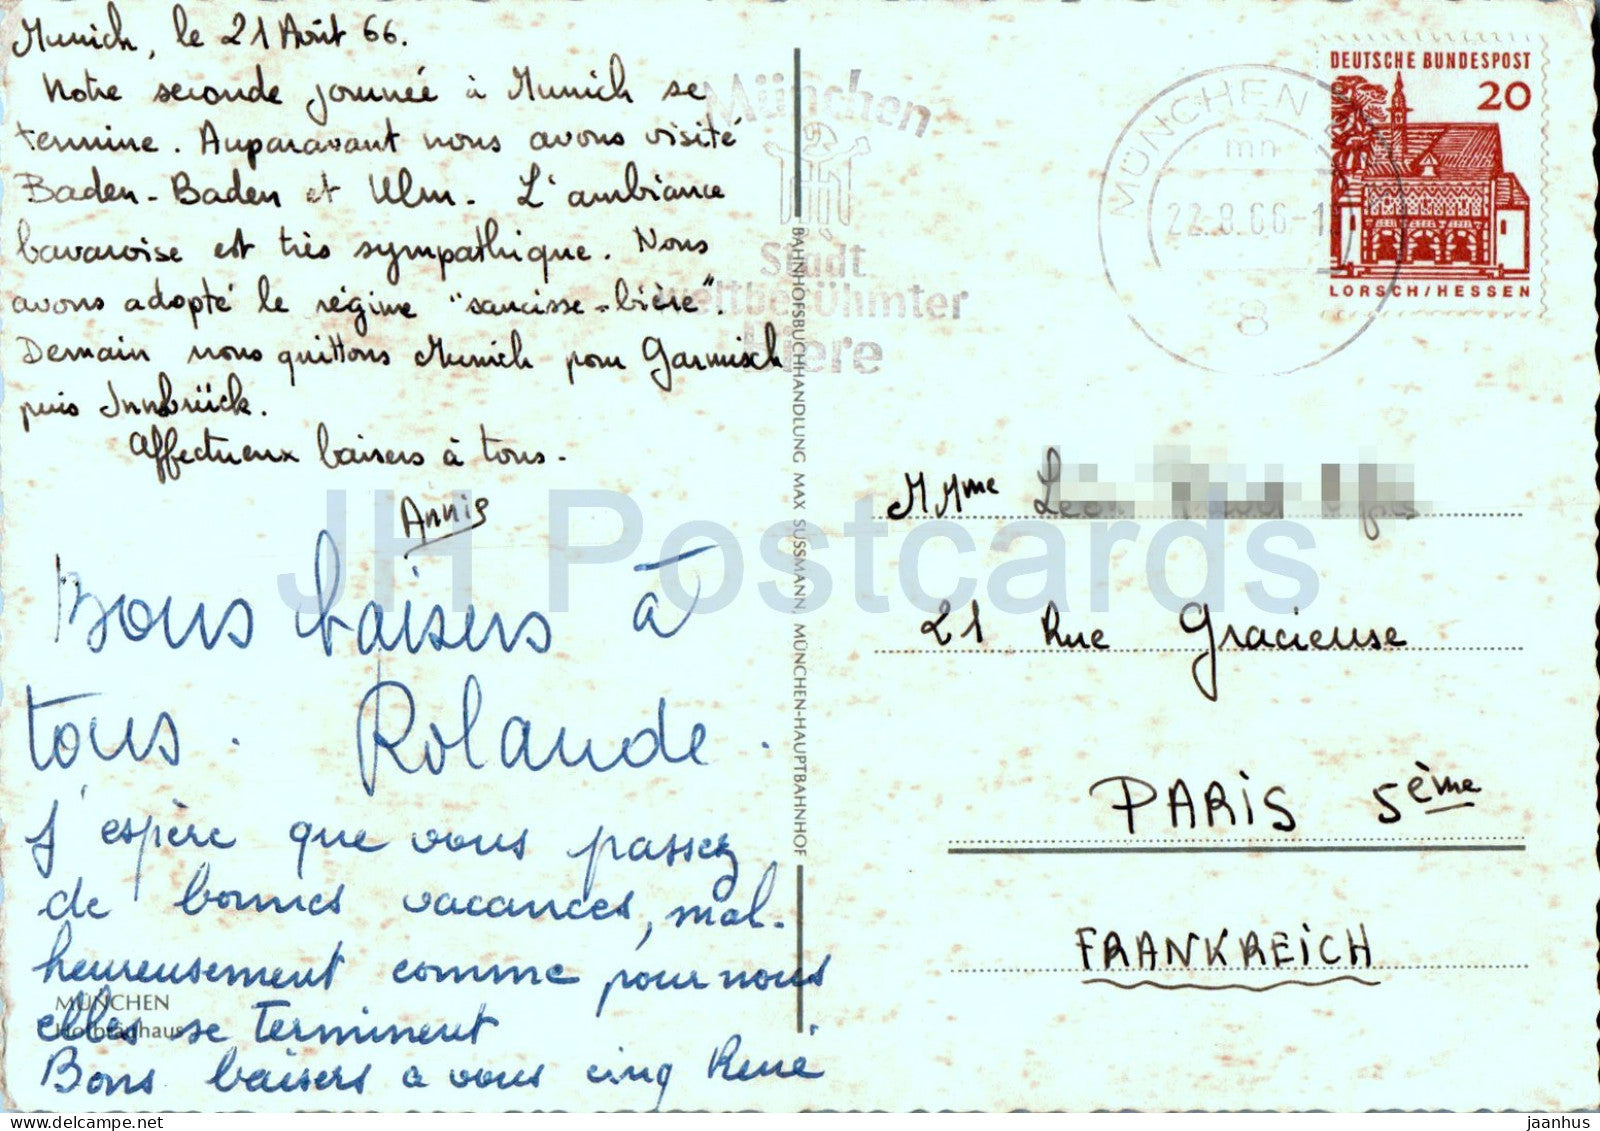 Munich, le 21 Août 66.
Notre seconde journée à Munich se
termine. Auparavant nous avons visité
Baden-Baden et Ulm. L'ambiance
bavaroise est très sympathique. Nous
avons adopté le régime "saucisse-bière".
Demain nous quittons Munich pour Garmisch
puis Innbrück.
Affectueux baisers à tous.
Annie
Bons baisers à
tous. Rolande.
J'espère que vous passez
de bonnes vacances, mal-
heureusement comme pour nous
elles se terminent
Bons baisers a vous cinq René
MÜNCHEN
Hofbräuhaus
BAHNHOFSBUCHHANDLUNG MAX SUSSMANN, MÜNCHEN-HAUPTBAHNHOF
München
Stadt
weltberühmter
Biere
MÜNCHEN
mn
22.8.66-1
8
DEUTSCHE BUNDESPOST
20
LORSCH/HESSEN
M Mme
21 Rue Gracieuse
PARIS 5ème
FRANKREICH
JH Postcards
HIPPOSTCARD.COM
jaanhus